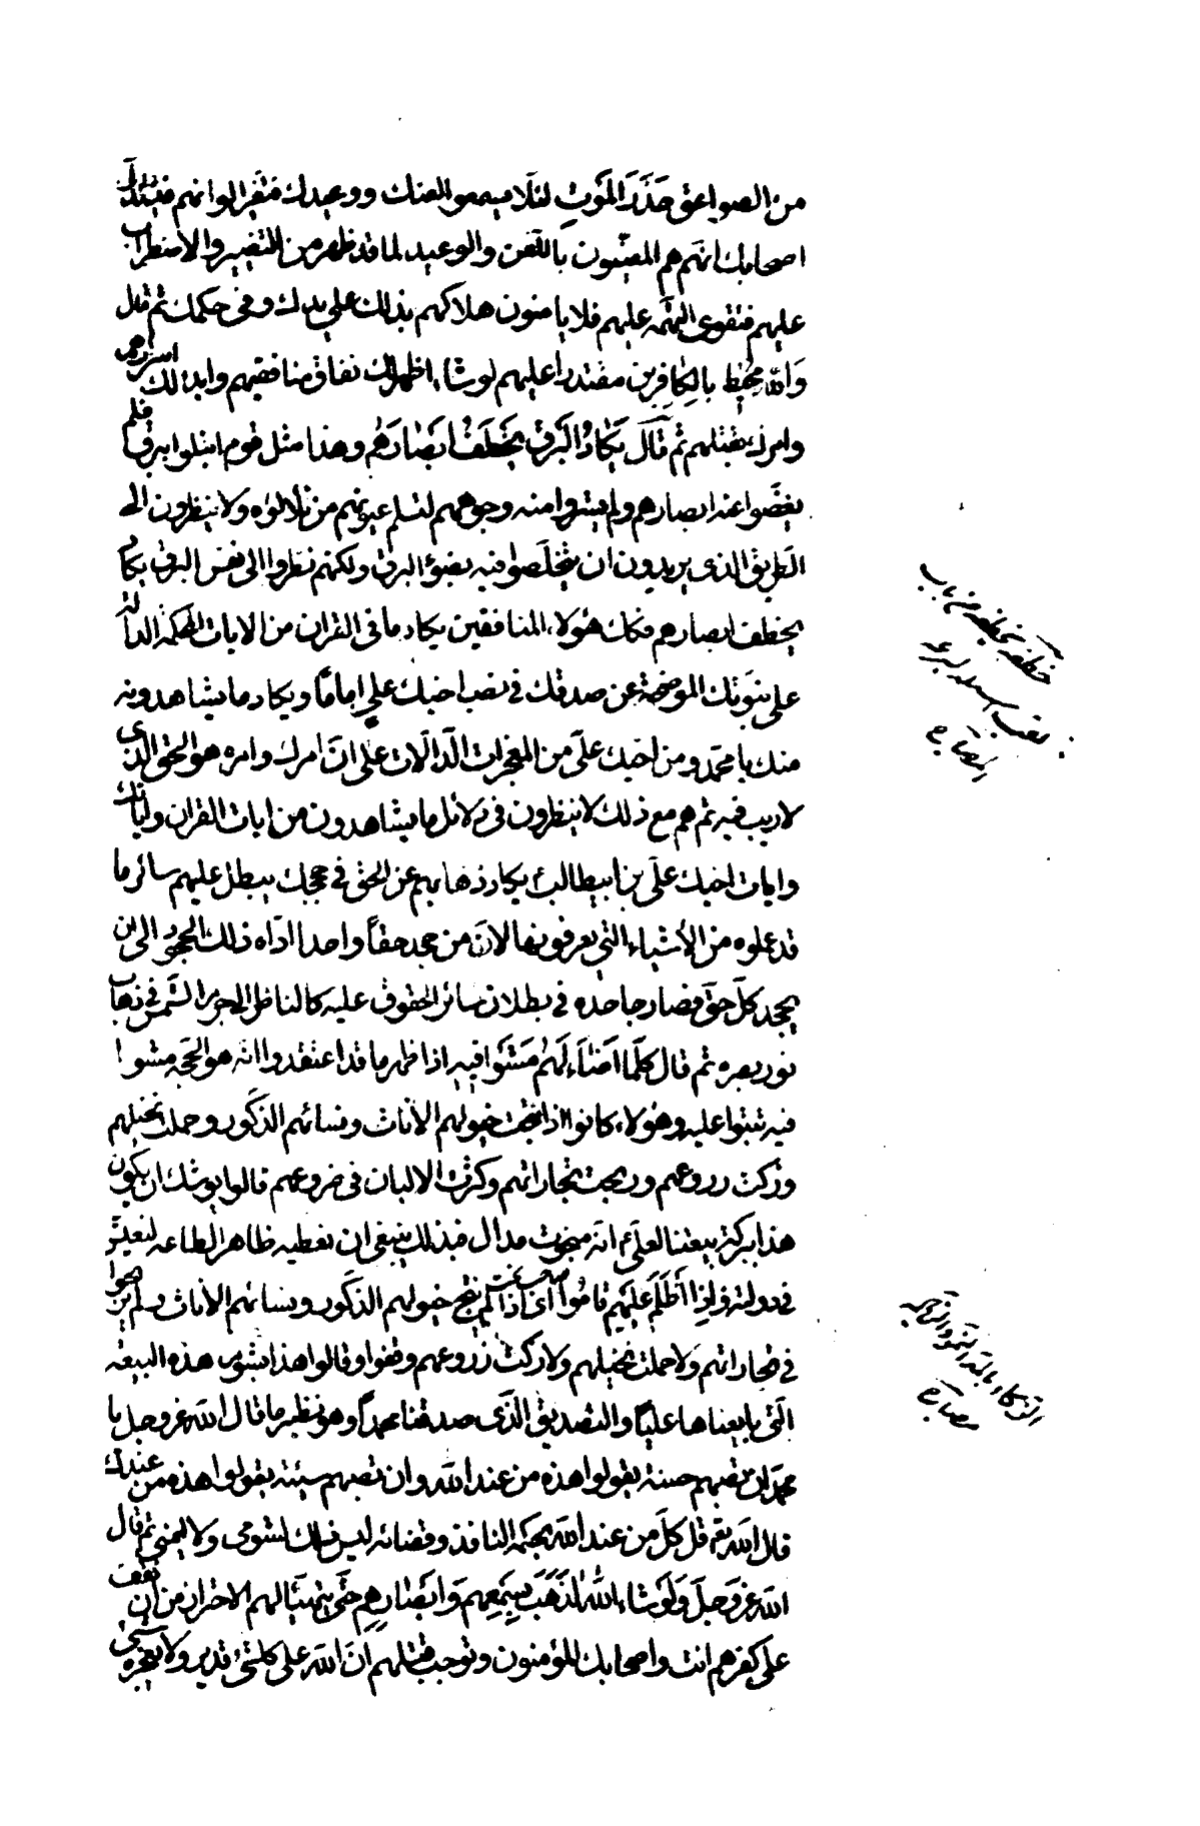 من الصواعق حَذَرَ المَوْتِ لئلّا يسمعوا لعنك ووعيدك فتغيّر الوانهم فيستدلّ
اصحابك انهم هم المعنيّون باللّعن والوعيد لما قد ظهر من التغيير والاضطراب
عليهم فتقوى التهمة عليهم فلا يامنون هلاكهم بذلك على يدك وفى حكمك ثم قال
وَاللّهُ مُحيطٌ بالكافِرين مقتدر عليهم لو شاء اظهر لك نفاق منافقيهم وابدا لك اسرارهم
وامرك بقتلهم ثم قال يَكادُ البَرْقُ يَخْطَفُ اَبصارَهُم وهذا مثل قوم ابتلوا ببرق فلم
يغضّوا عنه ابصارهم ولم يستروا منه وجوههم لتسلم عيونهم من تلألؤه ولا ينظرون الى
الطريق الذى يريدون ان يتخلّصوا فيه بضوء البرق ولكنهم نظروا الى نفس البرق فكاد
يخطف ابصارهم فكك هؤلاء المنافقين يكاد ما فى القران من الايات المحكمة الدالة
على نبوّتك الموضحة عن صدقك فى نصب اخيك علي اماماً ويكاد ما يشاهدونه
منك يا محمّد ومن اخيك علىّ من المعجزات الدّالّات على انّ امرك وامره هو الحق الذى
لا ريب فيه ثم هم مع ذلك لا ينظرون فى دلائل ما يشاهدون من ايات القران واياتك
وايات اخيك علىّ بن ابيطالب يكاد ذهابهم عن الحق فى حججك يبطل عليهم سائر ما
قد علموه من الأشياء التى يعرفونها لانّ من جحد حقّاً واحدا ادّاه ذلك الجحود الى ان
يجحد كلّ حقّ فصار جاحده فى بطلان سائر الحقوق عليه كالناظر الى جرم الشمس فى ذهاب
نور بصره ثم قال كلّما اَضاءَ لَهُم مَشَوا فيهِ اذا ظهر ما قد اعتقدوا انه هو الحجّة مشوا
فيه ثبتوا عليه وهؤلاء كانوا اذا نتجت خيولهم الأناث ونسائهم الذكور وحملت نخيلهم
وزكت زروعهم وربحت تجاراتهم وكثرت الالبان فى ضروعهم قالوا يوشك ان يكون
هذا ببركة بيعتنا لعلىّ انّه مبخوت مدال فبذلك ينبغى ان نعطيه ظاهر الطاعة لنعيش
فى دولته وَاِذا اَظلَمَ عَلَيهِم قامُوا اى اذا لم ينتج خيولهم الذكور ونسائهم الأناث ولم يربحوا
فى تجاراتهم ولا حملت نخيلهم ولا زكت زروعهم وقفوا وقالوا هذا بشوم هذه البيعة
الّتى بايعناها عليّاً والتصديق الّذى صدقنا محمداً وهو نظير ما قال الله عز وجل يا
محمّد ان تصبهم حسنة يقولوا هذه من عند الله وان تصبهم سيئة يقولوا هذه من عندك
قال الله تع قل كلّ من عند الله بحكمه النافذ وقضائه ليس ذلك لشومى ولا ليمنى ثم قال
الله عز وجل وَلَو شاءَ اللّهُ لَذَهَبَ بِسَمعِهِم وَاَبصارِهِم حتّى يتهيّأ لهم الاحتراز من ان تقف
على كفرهم انت واصحابك المؤمنون وتوجب قتلهم انّ اللّه على كلّ شئ قدير ولا يعجزه شئ
المصباح
مصباح